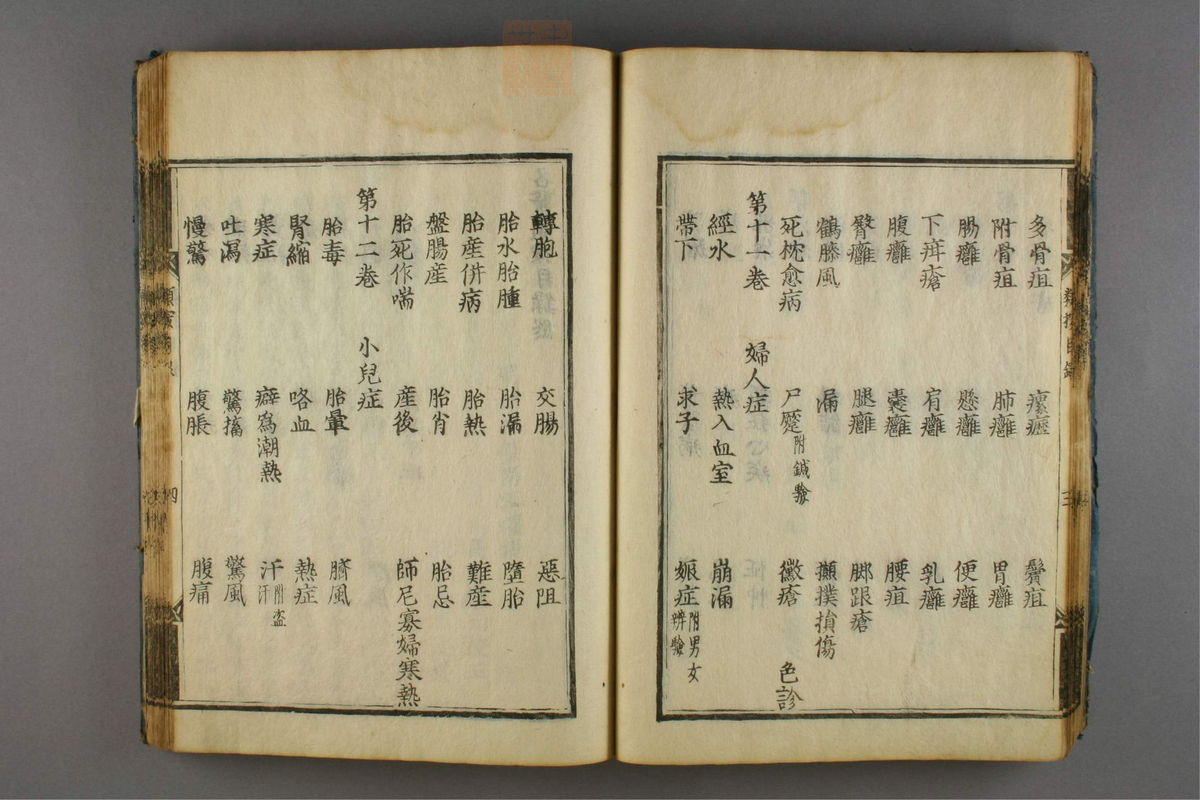 多骨疽 瘰癧 鬢疽
附骨疽 肺癰 胃癰
腸癰 懸癰 便癰
下疳瘡 肩癰 乳癰
腹癰 囊癰 腰疽
臀癰 腿癰 腳跟瘡
鶴膝風 漏 攧撲損傷
死枕愈病 尸蹷附鍼驗 黴瘡 色診
第十一卷 婦人症
經水 熱入血室 崩漏
帶下 求子 娠症附男女辨驗
轉胞 交腸 惡阻
胎水胎腫 胎漏 墮胎
胎産併病 胎熱 難産
盤腸産 胎肖 胎忌
胎死作喘 産後 師尼寡婦寒熱
第十二卷 小兒症
胎毒 胎暈 臍風
腎縮 咯血 熱症
寒症 癖爲潮熱 汗附盜汗
吐瀉 驚搐 驚風
慢驚 腹脹 腹痛
三
四